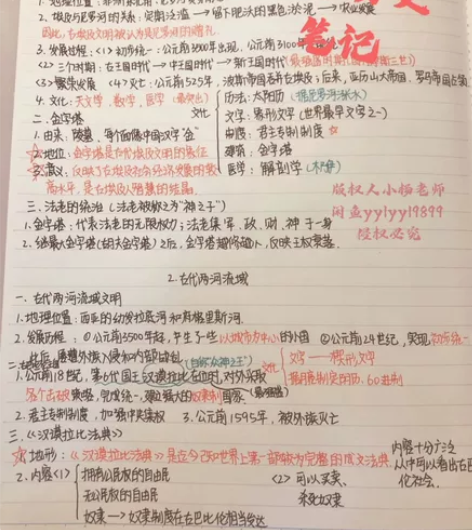 笔记
1. 地理位置：
2. 埃及与尼罗河的关系：定期泛滥 → 留下肥沃的黑色淤泥 → 农业发展
因此，古埃及文明被认为是尼罗河的赠礼
3. 发展历程：<1> 初步统一：公元前3000年出现，公元前3100年
<2> 三个时期：古王国时代 → 中王国时代 → 新王国时代
<3> 繁荣发展 <4> 灭亡：公元前525年，波斯帝国吞并古埃及；后来，亚历山大帝国，罗马帝国
4. 文化：天文学，数学，医学
文化
历法：太阳历
文字：象形文字（世界最早文字之一）
制度：君主专制制度 ☆
建筑：金字塔
医学：解剖学（木乃伊）
二. 金字塔
1. 由来：陵墓，每个面像中国汉字"金"
☆2. 地位：金字塔是古代埃及文明的象征
☆3. 意义：反映了古埃及社会经济发展的较
高水平，是古埃及人智慧的结晶。
版权人小杨老师
闲鱼yylyyl9899
侵权必究
三. 法老的统治（法老被敬之为"神之子"）
1. 金字塔：代表法老的无限权力；法老集军、政、财、神于一身
2. 继最大金字塔（胡夫金字塔）之后，金字塔越修越小，反映王权衰落.
2. 古代两河流域
一. 古代两河流域文明
1. 地理位置：西亚的幼发拉底河和底格里斯河.
2. 发展历程：①公元前3500年起，产生了一些以城市为中心的小国 ②公元前24世纪，实现初步统一
此后
文化
文字——楔形文字
60进制
1. 公元前18世纪，第6代国王汉谟拉比在位时，对外采取
各个击破策略，完成统一，建立强大的奴隶制国家.
2. 君主专制制度，加强中央集权 3. 公元前1595年，被外族灭亡
三.《汉谟拉比法典》
☆1. 地形：《汉谟拉比法典》是迄今已知世界上第一部较为完整的成文法典.
内容十分广泛
从中可以看出古巴
伦社会.
2. 内容<1> 拥有公民权的自由民
无公民权的自由民
奴隶 → 奴隶制度在古巴比伦相当发达
<2> 可以买卖、
杀死奴隶